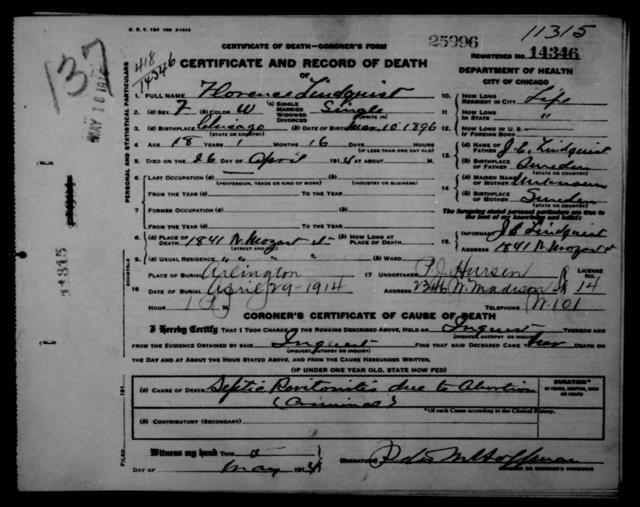 11315
CERTIFICATE OF DEATH—CORONER'S FORM
25996
REGISTERED NO 14346
137
418
14346
MAY 18 1914
CERTIFICATE AND RECORD OF DEATH
OF
DEPARTMENT OF HEALTH
CITY OF CHICAGO
PERSONAL AND STATISTICAL PARTICULARS
1. FULL NAME Florence Lindquist
2. (a) SEX F (b) COLOR W (c) SINGLE MARRIED WIDOWED DIVORCED Single (WRITE IN)
3. (a) BIRTHPLACE Chicago (b) DATE OF BIRTH Mar. 10 1896
(STATE OR COUNTRY)
4. AGE 18 YEARS 1 MONTHS 16
(IF LESS THAN ONE DAY OLD)
5. DIED ON THE 26 DAY OF April 1914 AT ABOUT M.
6. LAST OCCUPATION
(PROFESSION, TRADE OR KIND OF WORK) (INDUSTRY OR BUSINESS)
FROM THE YEAR (c) TO THE YEAR
7. FORMER OCCUPATION
FROM THE YEAR (c) TO THE YEAR
8. (a) PLACE OF DEATH 1841 N. Mozart st (b) HOW LONG AT PLACE OF DEATH
(STREET AND NO.)
9. (a) USUAL RESIDENCE " " " " (b) WARD
10. HOW LONG RESIDENT IN CITY Life
11. HOW LONG IN STATE "
12. HOW LONG IN U.S. IF FOREIGN BORN
13. (a) NAME OF FATHER J. E. Lindquist
(b) BIRTHPLACE OF FATHER Sweden
(STATE OR COUNTRY)
14. (a) MAIDEN NAME OF MOTHER Unknown
(b) BIRTHPLACE OF MOTHER Sweden
(STATE OR COUNTRY)
The foregoing stated personal particulars are true to the best of my knowledge and belief:
15. INFORMANT J. E. Lindquist
ADDRESS 1841 N Mozart st
11315
PLACE OF BURIAL Arlington
17 UNDERTAKER P. J. Hursen
LICENSE NO.
DATE OF BURIAL April 29-1914
ADDRESS 2346 W. Madison St 14
HOUR 1 P.
TELEPHONE W. 101
CORONER'S CERTIFICATE OF CAUSE OF DEATH
I Hereby Certify THAT I TOOK CHARGE OF THE REMAINS DESCRIBED ABOVE, HELD AN Inquest THEREON AND
(INQUEST, AUTOPSY OR INQUIRY)
FROM THE EVIDENCE OBTAINED BY SAID Inquest FIND THAT SAID DECEASED CAME TO her DEATH ON
(INQUEST, AUTOPSY OR INQUIRY)
THE DAY AND AT ABOUT THE HOUR STATED ABOVE, AND FROM THE CAUSE HEREUNDER WRITTEN.
(IF UNDER ONE YEAR OLD, STATE HOW FED)
(a) CAUSE OF DEATH Septic Peritonitis due to Abortion
(Criminal)
DURATION*
IN YEARS, MONTHS, DAYS OR HOURS
*(of each Cause according to the Clinical History.
(b) CONTRIBUTORY (SECONDARY)
FILED
191
Witness my hand THIS
DAY OF May 1914
(SIGNATURE) Peter M. Hoffman
CORONER OR CORONER'S PHYSICIAN